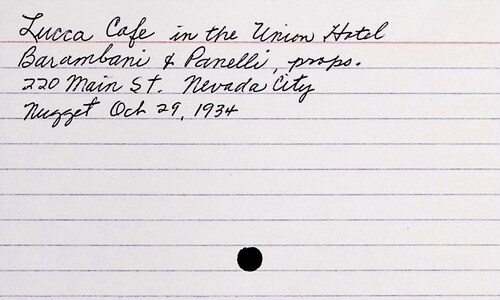 Lucca Cafe in the Union Hotel
Barambani & Panelli, props.
220 Main St. Nevada City
Nugget Oct 29, 1934